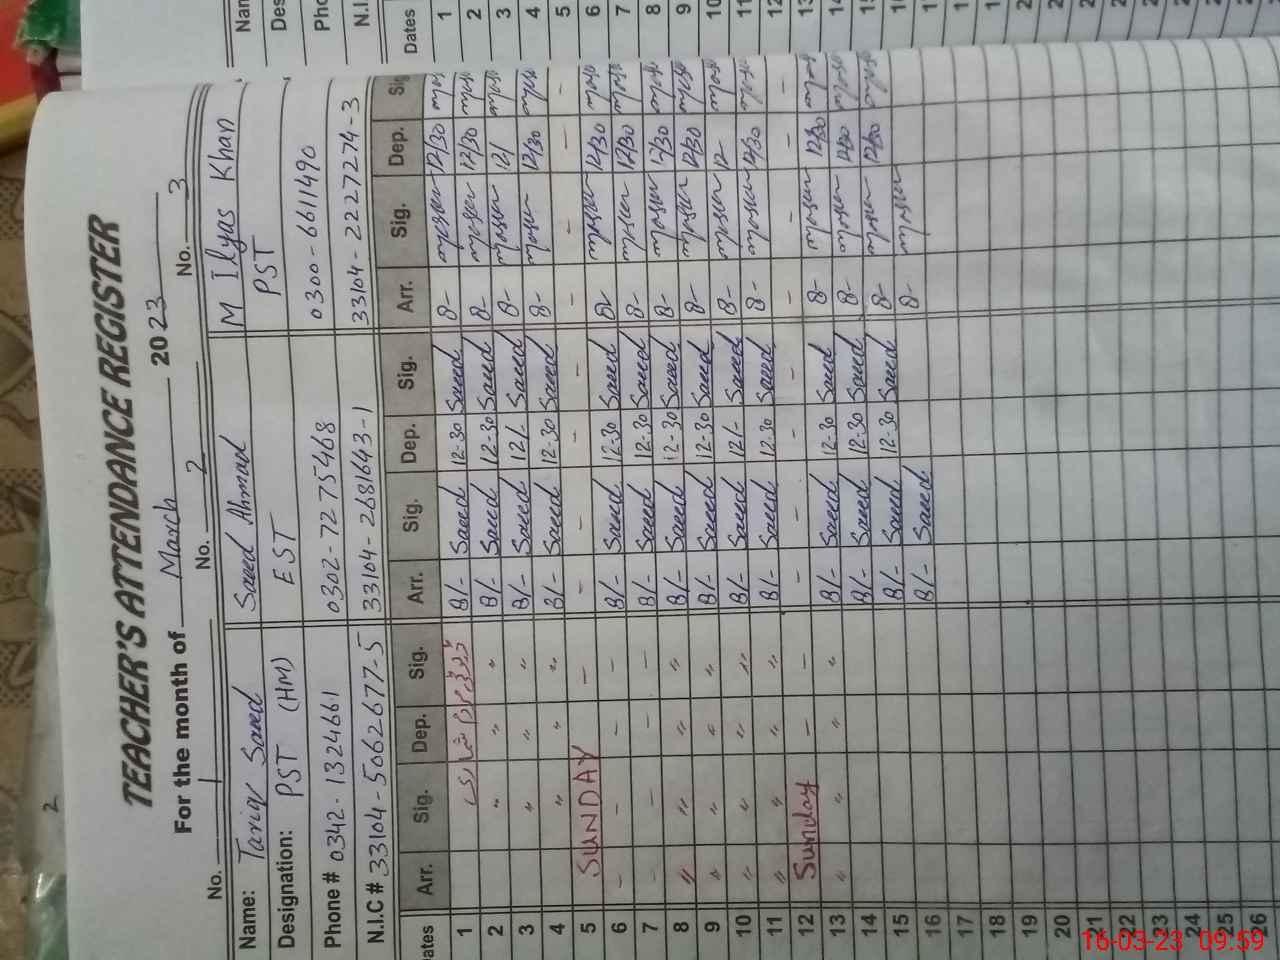 2
TEACHER'S ATTENDANCE REGISTER
For the month of March 2023
No. 1 No. 2 No. 3
Name: Tariq Saeed Saeed Ahmad M Ilyas Khan
Designation: PST (HM) EST PST
Phone # 0342-1324661 0302-7275468 0300-6611490
N.I.C # 33104-5062677-5 33104-2681643-1 33104-2227274-3
Dates Arr. Sig. Dep. Sig. Arr. Sig. Dep. Sig. Arr. Sig. Dep. Sig
1 8/- Saeed 12-30 Saeed 8- 12/30
2 " " " 8/- Saeed 12-30 Saeed 8- 12/30
3 " " " 8/- Saeed 12/- Saeed 8- 12/
4 " " " 8/- Saeed 12-30 Saeed 8- 12/30
5 SUNDAY - - - - - - - - -
6 - - - - 8/- Saeed 12-30 Saeed 8- 12/30
7 - - - - 8/- Saeed 12-30 Saeed 8- 12/30
8 " " " " 8/- Saeed 12-30 Saeed 8- 12/30
9 " " " " 8/- Saeed 12-30 Saeed 8- 12/30
10 " " " " 8/- Saeed 12/- Saeed 8- 12-
11 " " " " 8/- Saeed 12-30 Saeed 8- 12/30
12 Sunday - - - - - - - - - -
13 " " " " 8/- Saeed 12-30 Saeed 8- 12/30
14 8/- Saeed 12-30 Saeed 8- 12/30
15 8/- Saeed 12-30 Saeed 8- 12/30
16 8/- Saeed 8-
17
18
19
20
21
22
23
24
25
26
Nam
Des
Pho
N.I.
Dates
1
2
3
4
5
6
7
8
9
10
11
12
13
14
15
16
17
16-03-23 09:59